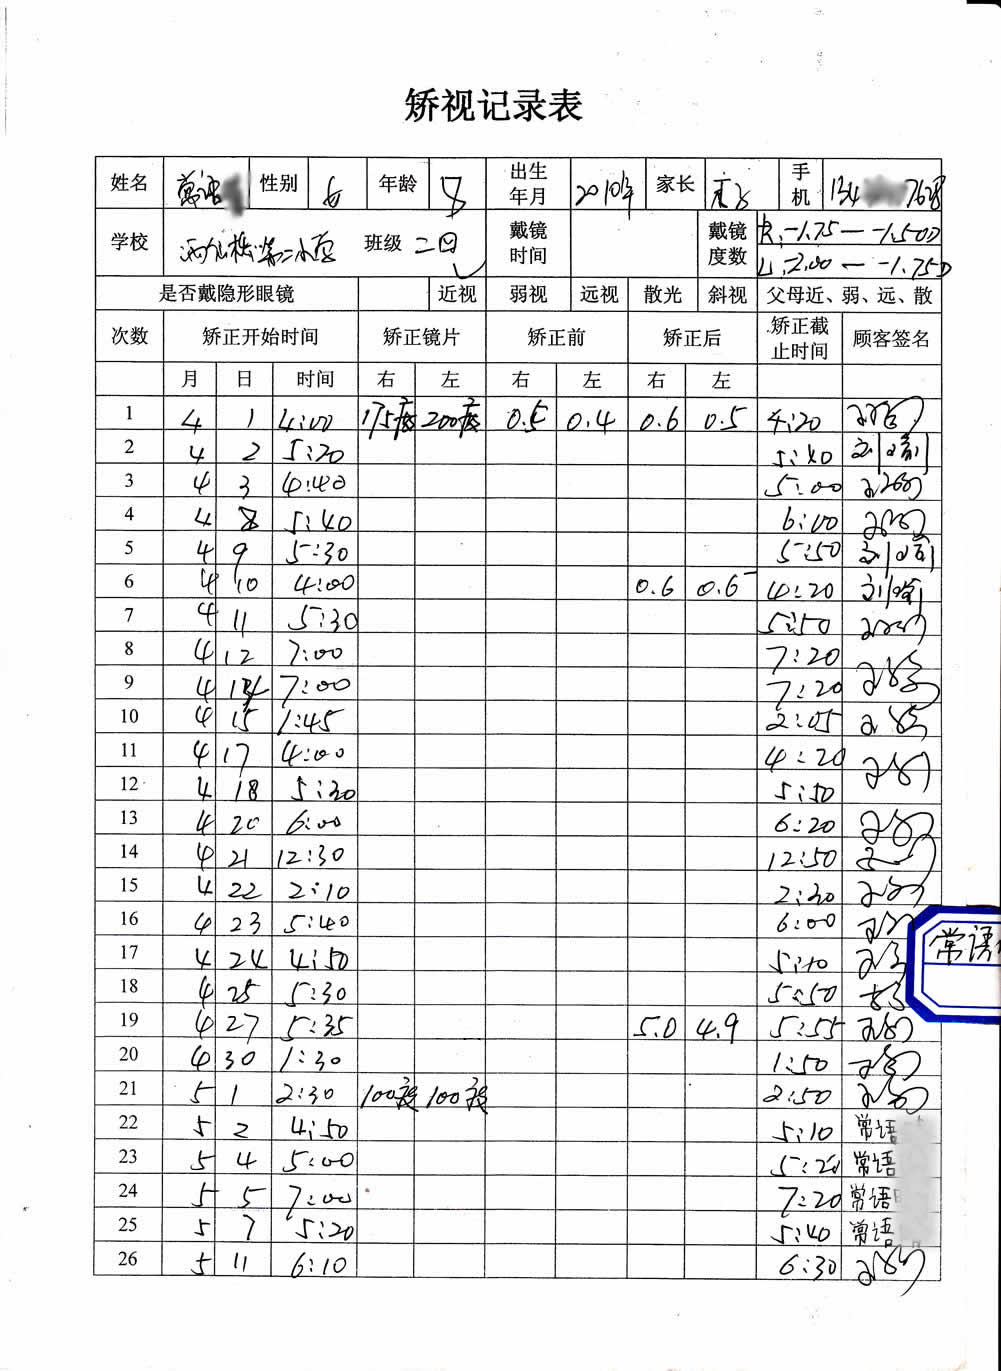 矫视记录表
姓名 性别 女 年龄 8 出生年月 2010年 家长 手机 134 7628
学校 第二小学 班级 二四 戴镜时间 戴镜度数 R:-1.75 — -1.50D
L:-2.00 — -1.75D
是否戴隐形眼镜 近视 弱视 远视 散光 斜视 父母近、弱、远、散
次数 矫正开始时间 矫正镜片 矫正前 矫正后 矫正截止时间 顾客签名
月 日 时间 右 左 右 左 右 左
1 4 1 4:00 175度 200度 0.5 0.4 0.6 0.5 4:20
2 4 2 5:20 5:40
3 4 3 4:40 5:00
4 4 8 5:40 6:00
5 4 9 5:30 5:50
6 4 10 4:00 0.6 0.6 4:20
7 4 11 5:30 5:50
8 4 12 7:00 7:20
9 4 14 7:00 7:20
10 4 15 1:45 2:05
11 4 17 4:00 4:20
12 4 18 5:30 5:50
13 4 20 6:00 6:20
14 4 21 12:30 12:50
15 4 22 2:10 2:30
16 4 23 5:40 6:00
17 4 24 4:50 5:10
常语
18 4 25 5:30 5:50
19 4 27 5:35 5.0 4.9 5:55
20 4 30 1:30 1:50
21 5 1 2:30 100度 100度 2:50
22 5 2 4:50 5:10 常语
23 5 4 5:00 5:20 常语
24 5 5 7:00 7:20 常语
25 5 7 5:20 5:40 常语
26 5 11 6:10 6:30